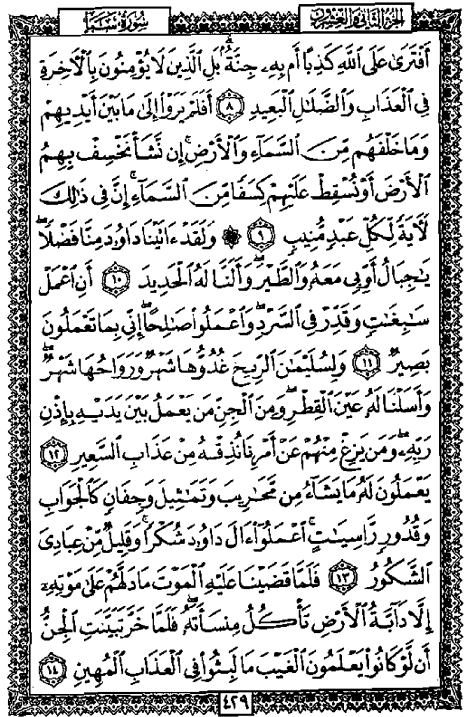 الجزء الثاني والعشرون
سورة سبأ
أَفْتَرَىٰ عَلَى ٱللَّهِ كَذِبًا أَم بِهِۦ جِنَّةٌۢ ۗ بَلِ ٱلَّذِينَ لَا يُؤْمِنُونَ بِٱلْءَاخِرَةِ
فِى ٱلْعَذَابِ وَٱلضَّلَٰلِ ٱلْبَعِيدِ ٨ أَفَلَمْ يَرَوْا۟ إِلَىٰ مَا بَيْنَ أَيْدِيهِمْ
وَمَا خَلْفَهُم مِّنَ ٱلسَّمَآءِ وَٱلْأَرْضِ ۚ إِن نَّشَأْ نَخْسِفْ بِهِمُ
ٱلْأَرْضَ أَوْ نُسْقِطْ عَلَيْهِمْ كِسَفًا مِّنَ ٱلسَّمَآءِ ۚ إِنَّ فِى ذَٰلِكَ
لَءَايَةً لِّكُلِّ عَبْدٍ مُّنِيبٍ ٩ ۞ وَلَقَدْ ءَاتَيْنَا دَاوُۥدَ مِنَّا فَضْلًا ۖ
يَٰجِبَالُ أَوِّبِى مَعَهُۥ وَٱلطَّيْرَ ۖ وَأَلَنَّا لَهُ ٱلْحَدِيدَ ١٠ أَنِ ٱعْمَلْ
سَٰبِغَٰتٍ وَقَدِّرْ فِى ٱلسَّرْدِ ۖ وَٱعْمَلُوا۟ صَٰلِحًا ۖ إِنِّى بِمَا تَعْمَلُونَ
بَصِيرٌ ١١ وَلِسُلَيْمَٰنَ ٱلرِّيحَ غُدُوُّهَا شَهْرٌ وَرَوَاحُهَا شَهْرٌ ۖ
وَأَسَلْنَا لَهُۥ عَيْنَ ٱلْقِطْرِ ۖ وَمِنَ ٱلْجِنِّ مَن يَعْمَلُ بَيْنَ يَدَيْهِ بِإِذْنِ
رَبِّهِۦ ۖ وَمَن يَزِغْ مِنْهُمْ عَنْ أَمْرِنَا نُذِقْهُ مِنْ عَذَابِ ٱلسَّعِيرِ ١٢
يَعْمَلُونَ لَهُۥ مَا يَشَآءُ مِن مَّحَٰرِيبَ وَتَمَٰثِيلَ وَجِفَانٍ كَٱلْجَوَابِ
وَقُدُورٍ رَّاسِيَٰتٍ ۚ ٱعْمَلُوٓا۟ ءَالَ دَاوُۥدَ شُكْرًا ۚ وَقَلِيلٌ مِّنْ عِبَادِىَ
ٱلشَّكُورُ ١٣ فَلَمَّا قَضَيْنَا عَلَيْهِ ٱلْمَوْتَ مَا دَلَّهُمْ عَلَىٰ مَوْتِهِۦٓ
إِلَّا دَآبَّةُ ٱلْأَرْضِ تَأْكُلُ مِنسَأَتَهُۥ ۖ فَلَمَّا خَرَّ تَبَيَّنَتِ ٱلْجِنُّ
أَن لَّوْ كَانُوا۟ يَعْلَمُونَ ٱلْغَيْبَ مَا لَبِثُوا۟ فِى ٱلْعَذَابِ ٱلْمُهِينِ ١٤
٤٢٩